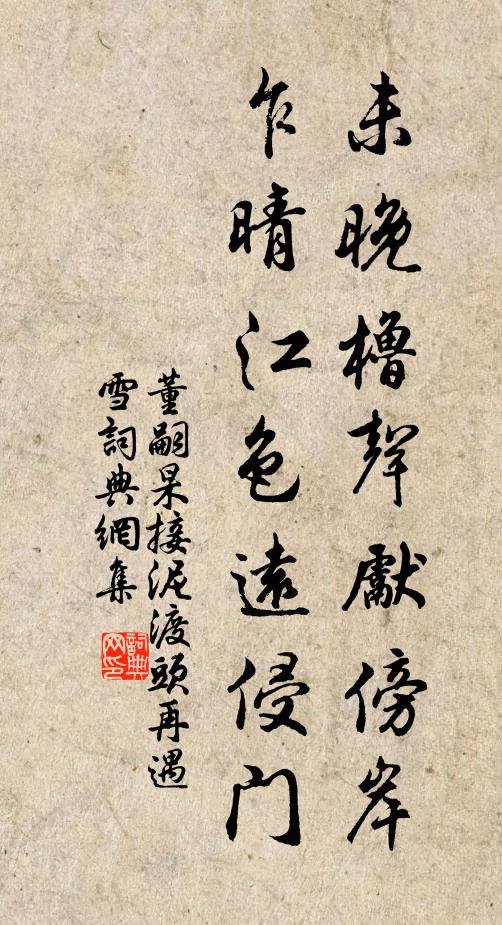 未晚櫓聲獻傍岸
乍晴江色遠侵門
董嗣杲接泥渡頭再遇
雪詞典網集
詞典網印